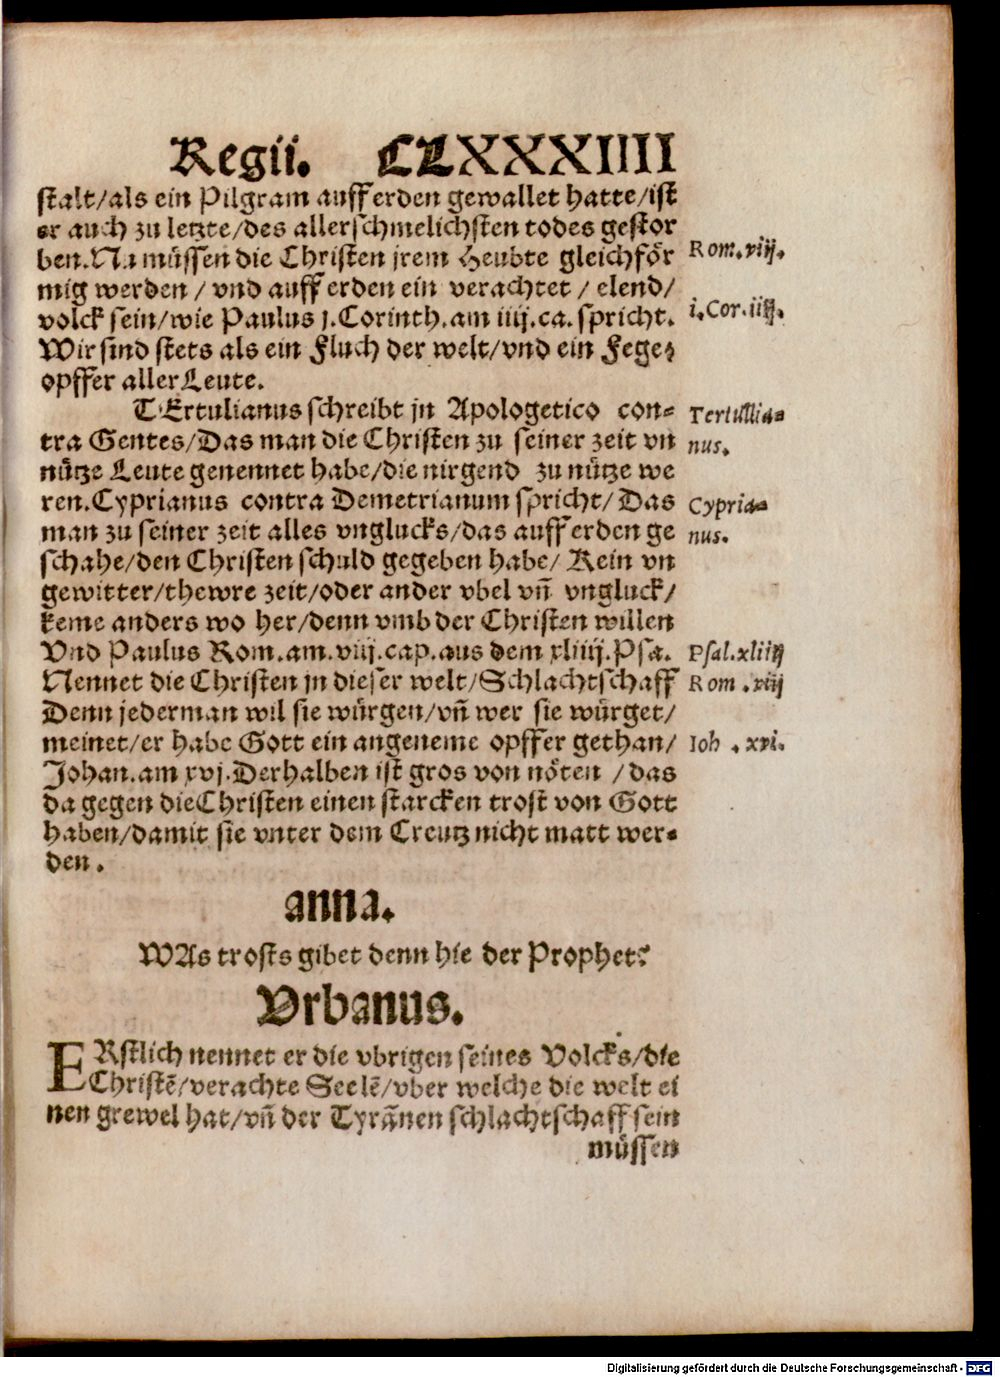 Regii. CLXXXIIII
stalt/als ein Pilgram auff erden gewallet hatte/ist
er auch zu letzte/des allerschmelichsten todes gestor
ben. Nu müssen die Christen jrem Heubte gleichför
Rom. viij.
mig werden / vnd auff erden ein verachtet / elend/
volck sein/wie Paulus j. Corinth. am iiij. ca. spricht.
i. Cor. iiij.
Wir sind stets als ein Fluch der welt/vnd ein Fege-
opffer aller Leute.
TErtulianus schreibt jn Apologetico con-
Tertullia-
tra Gentes/Das man die Christen zu seiner zeit vn
nus.
nütze Leute genennet habe/die nirgend zu nütze we
ren. Cyprianus contra Demetrianum spricht/Das
Cypria-
man zu seiner zeit alles vnglucks/das auff erden ge
nus.
schahe/den Christen schuld gegeben habe/ Kein vn
gewitter/thewre zeit/oder ander vbel vñ vngluck/
keme anders wo her/denn vmb der Christen willen
Vnd Paulus Rom. am. viij. cap. aus dem xliiij. Psa.
Psal. xliiij
Nennet die Christen jn dieser welt/Schlachtschaff
Rom. viij
Denn jederman wil sie würgen/vñ wer sie würget/
meinet/er habe Gott ein angeneme opffer gethan/
Ioh. xvi.
Johan. am xvj. Derhalben ist gros von nöten /das
da gegen die Christen einen starcken trost von Gott
haben/damit sie vnter dem Creutz nicht matt wer-
den.
anna.
WAs trosts gibet denn hie der Prophet?
Vrbanus.
ERstlich nennet er die vbrigen seines Volcks/die
Christẽ/verachte Seelẽ/vber welche die welt ei
nen grewel hat/vñ der Tyrãnen schlachtschaff sein
müssen
Digitalisierung gefördert durch die Deutsche Forschungsgemeinschaft - DFG